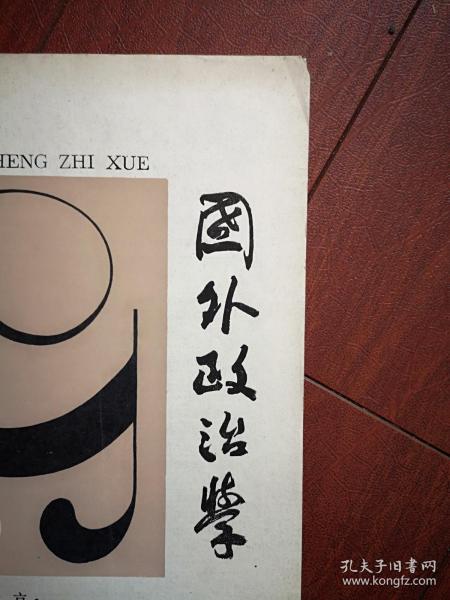 HENG ZHI XUE
國外政治學
京
孔夫子旧书网
www.kongfz.com